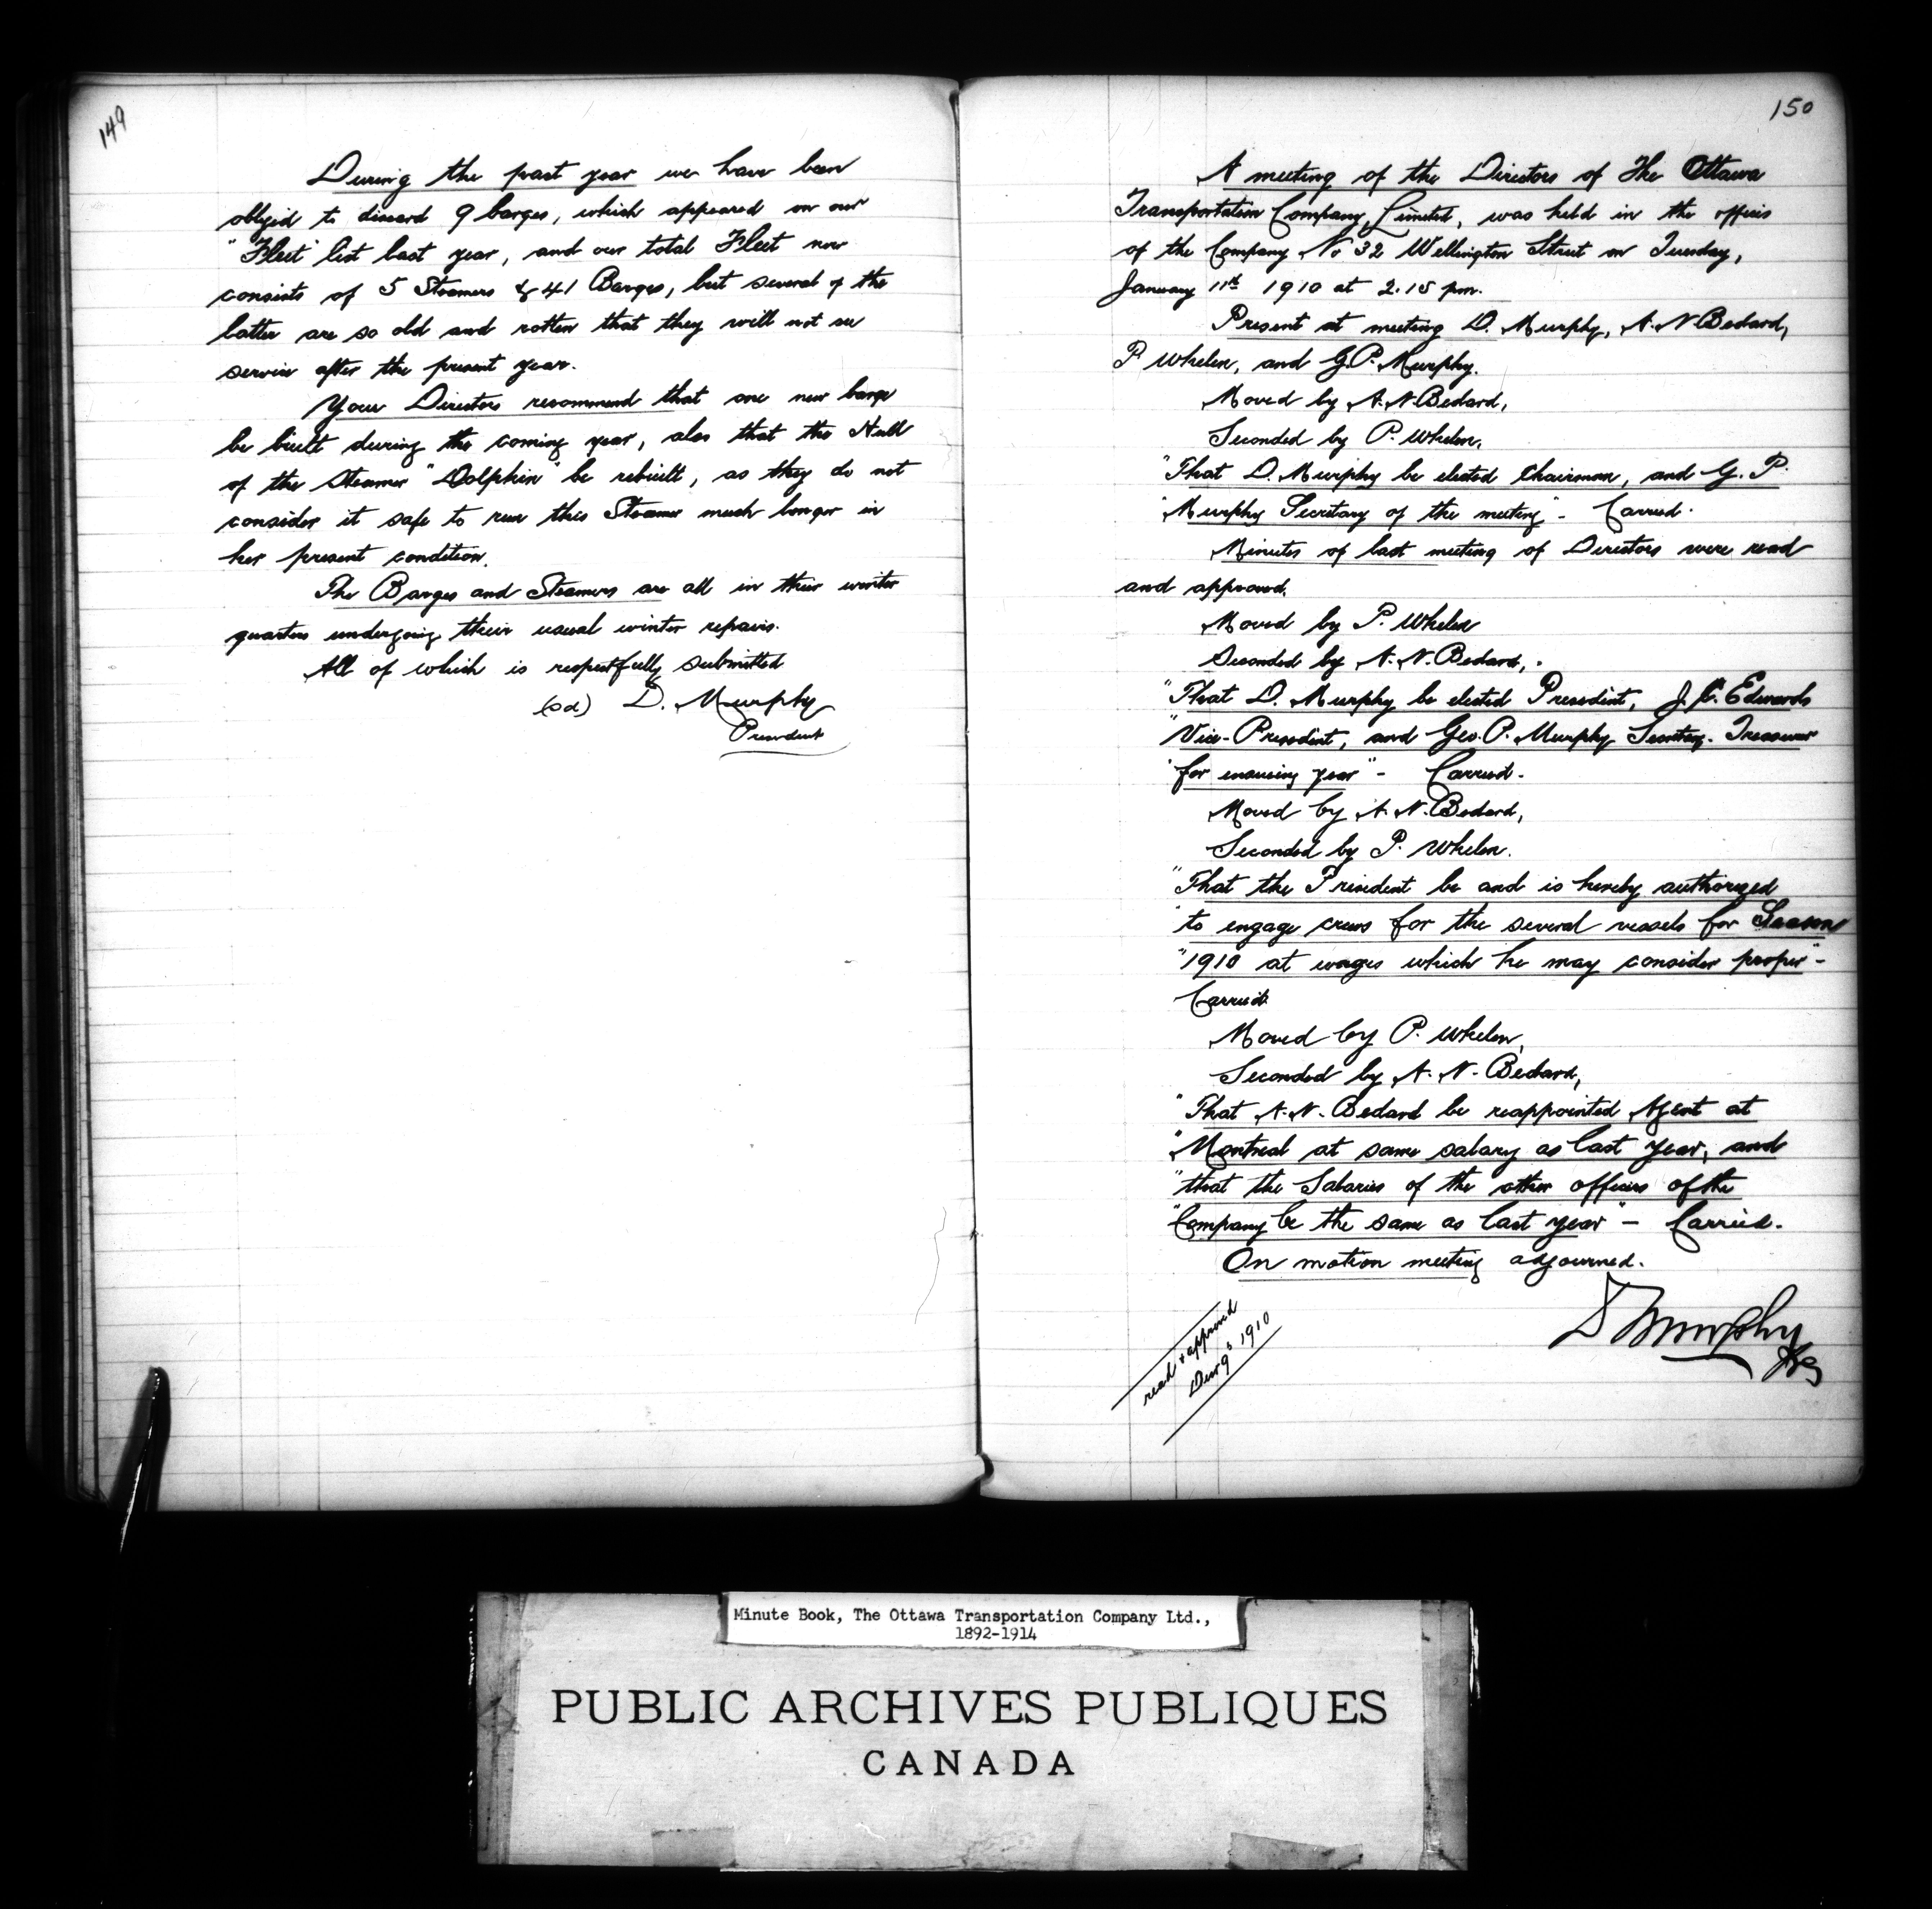 149
During the past year we have been
obliged to discard 9 barges, which appeared on our
"Fleet" list last year, and our total Fleet now
consists of 5 Steamers & 41 Barges, but several of the
latter are so old and rotten that they will not see
service after the present year.
Your Directors recommend that one new barge
be built during the coming year, also that the Hull
of the Steamer "Dolphin" be rebuilt, as they do not
consider it safe to run this Steamer much longer in
her present condition.
The Barges and Steamers are all in their winter
quarters undergoing their usual winter repairs.
All of which is respectfully submitted
(sd) D. Murphy
President
150
A meeting of the Directors of The Ottawa
Transportation Company, Limited, was held in the offices
of the Company No 32 Wellington Street on Tuesday,
January 11th 1910 at 2.15 pm.
Present at meeting D. Murphy, A. N. Bedard,
P Whelen, and G. P. Murphy.
Moved by A. N. Bedard,
Seconded by P. Whelen,
"That D. Murphy be elected Chairman, and G. P.
"Murphy Secretary of the meeting" - Carried.
Minutes of last meeting of Directors were read
and approved.
Moved by P. Whelen
Seconded by A. N. Bedard,
"That D. Murphy be elected President, J. C. Edwards
"Vice-President, and Geo. P. Murphy Secretary-Treasurer
"for ensuing year" - Carried.
Moved by A. N. Bedard,
Seconded by P. Whelen.
"That the President be and is hereby authorized
"to engage crews for the several vessels for Season
"1910 at wages which he may consider proper" -
Carried
Moved by P. Whelen,
Seconded by A. N. Bedard,
"That A. N. Bedard be reappointed Agent at
"Montreal at same salary as last year, and
"that the Salaries of the other officers of the
"Company be the same as last year" - Carried.
On motion meeting adjourned.
D Murphy
read & approved
1910
Minute Book, The Ottawa Transportation Company Ltd.,
1892-1914
PUBLIC ARCHIVES PUBLIQUES
CANADA